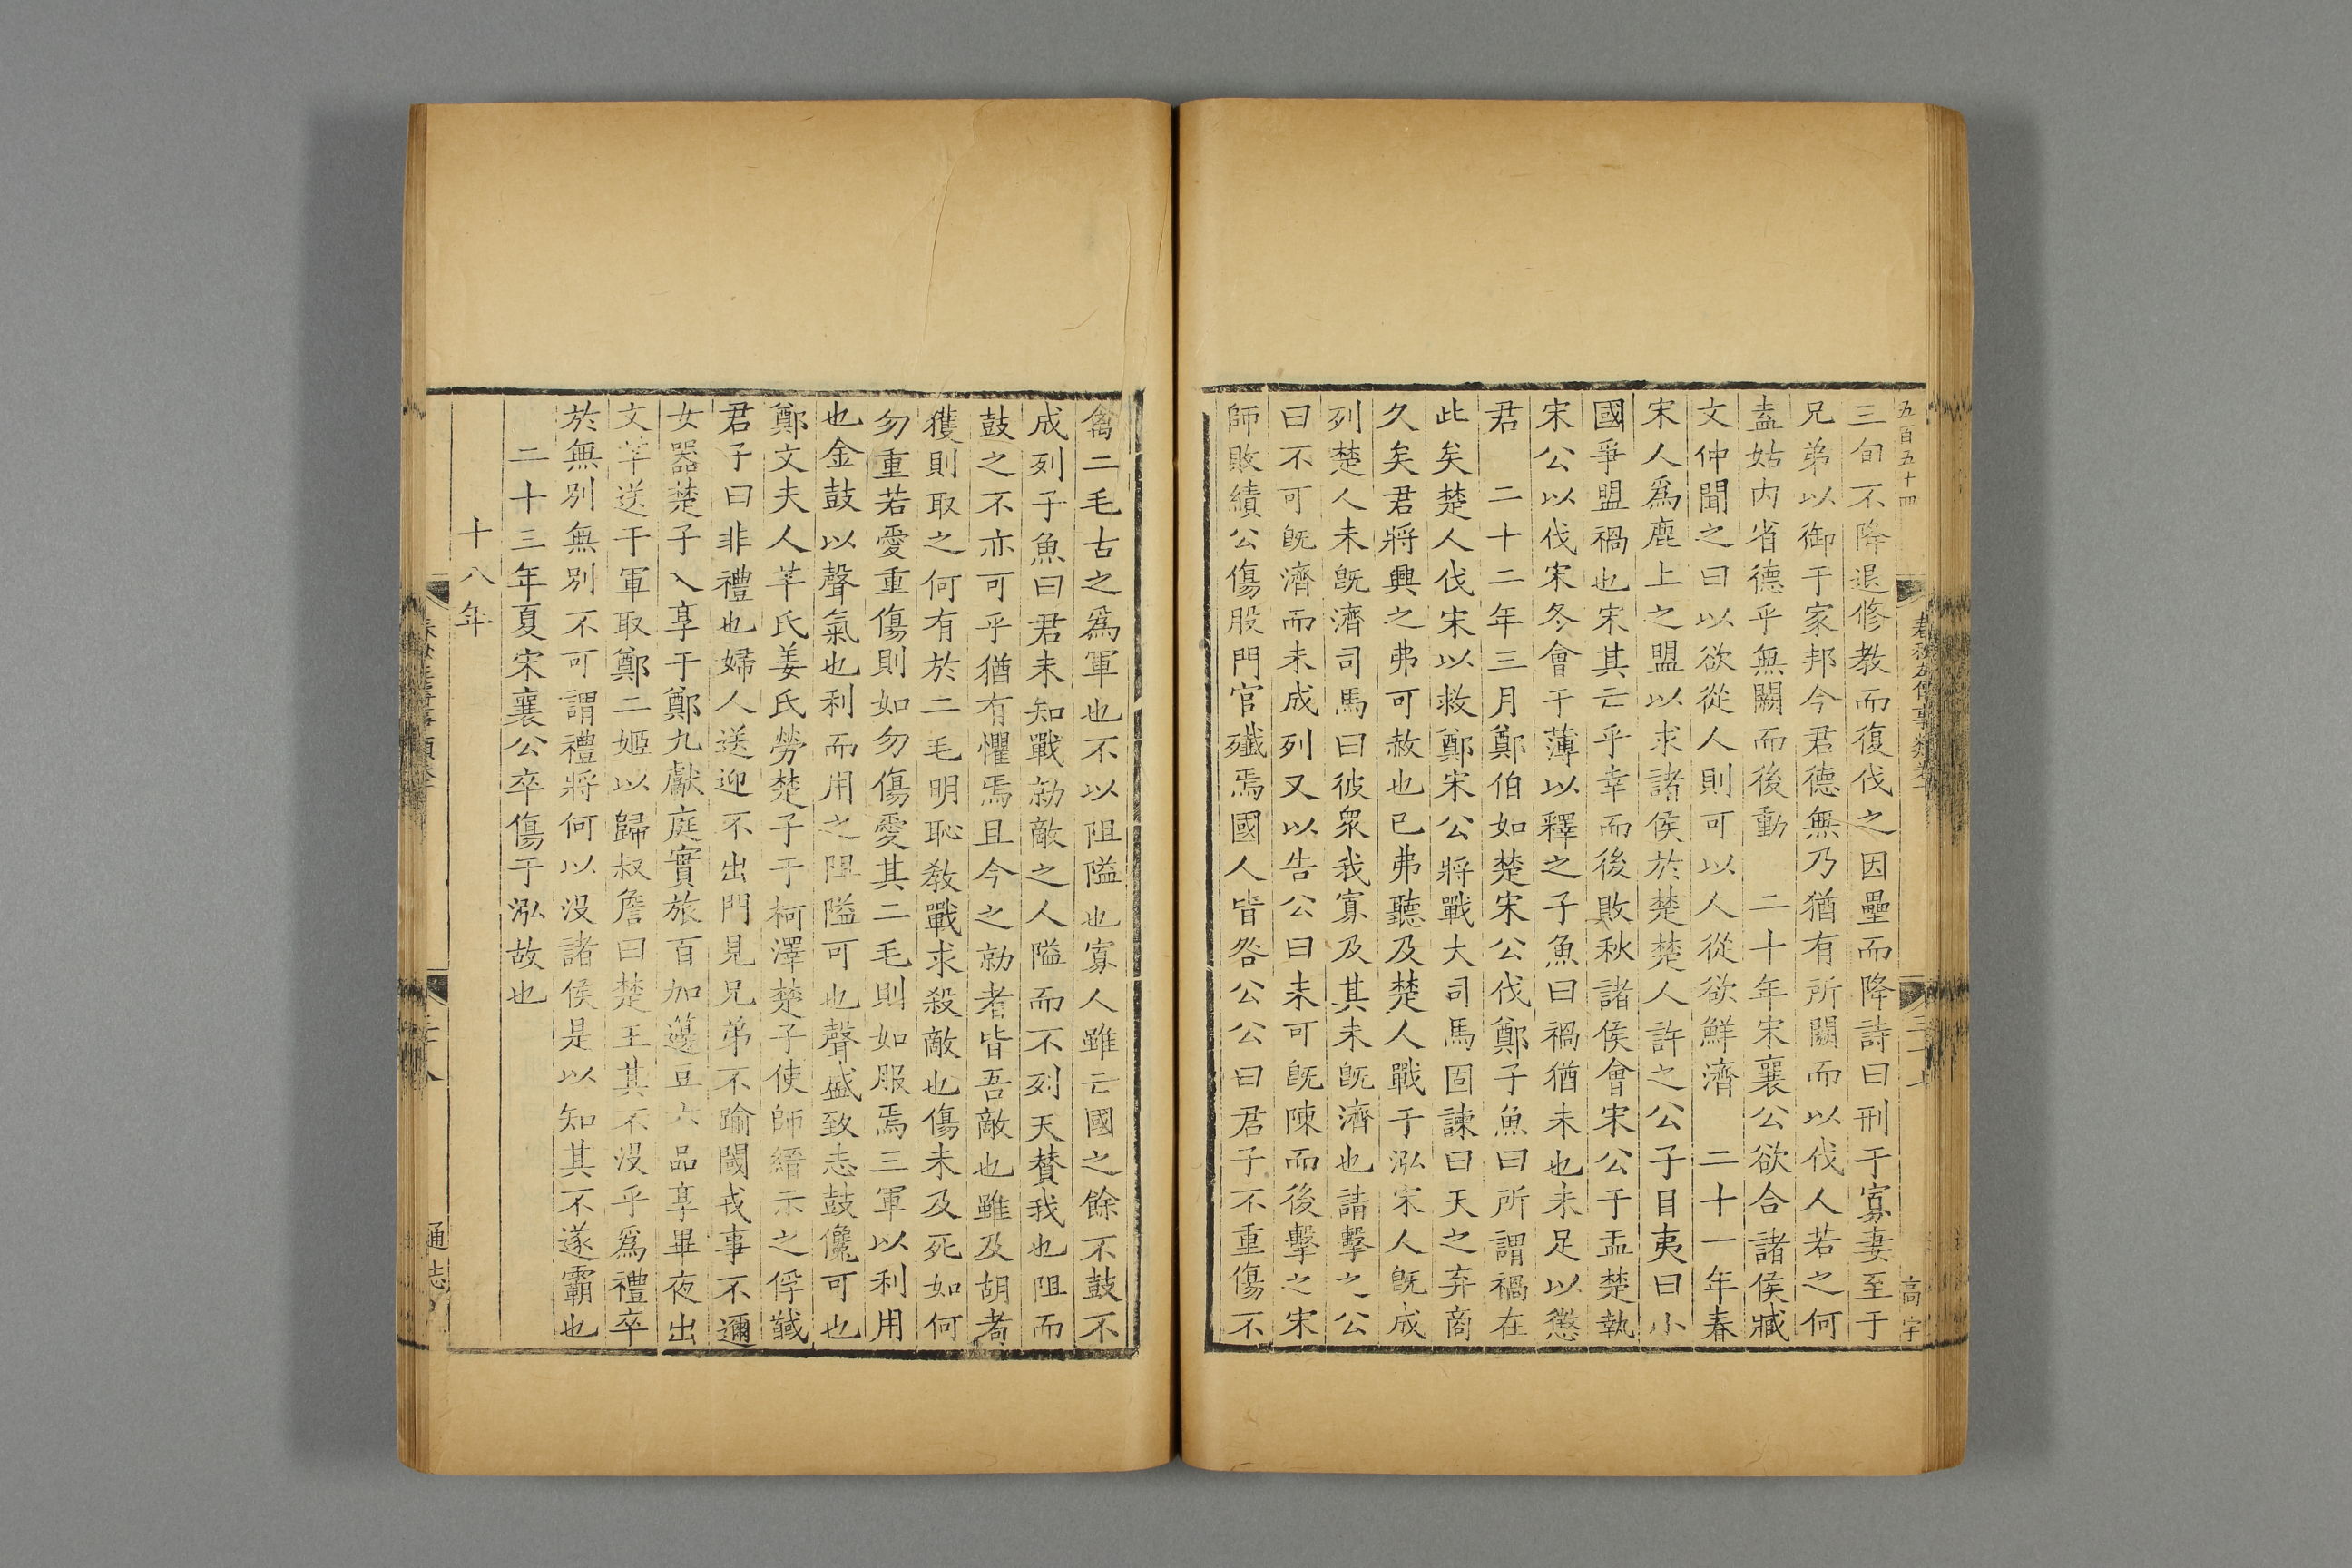 五百五十四
春秋左傳事類卷
高字
三旬不降退修教而復伐之因壘而降詩曰刑于寡妻至于
兄弟以御于家邦今君德無乃猶有所闕而以伐人若之何
盍姑内省德乎無闕而後動　二十年宋襄公欲合諸侯臧
文仲聞之曰以欲從人則可以人從欲鮮濟　二十一年春
宋人爲鹿上之盟以求諸侯於楚楚人許之公子目夷曰小
國爭盟禍也宋其亡乎幸而後敗秋諸侯會宋公于盂楚執
宋公以伐宋冬會于薄以釋之子魚曰禍猶未也未足以懲
君　二十二年三月鄭伯如楚宋公伐鄭子魚曰所謂禍在
此矣楚人伐宋以救鄭宋公將戰大司馬固諫曰天之弃商
久矣君將興之弗可赦也已弗聽及楚人戰于泓宋人旣成
列楚人未旣濟司馬曰彼衆我寡及其未旣濟也請擊之公
曰不可旣濟而未成列又以告公曰未可旣陳而後擊之宋
師敗績公傷股門官殲焉國人皆咎公公曰君子不重傷不
禽二毛古之爲軍也不以阻隘也寡人雖亡國之餘不鼓不
成列子魚曰君未知戰勍敵之人隘而不列天賛我也阻而
鼓之不亦可乎猶有懼焉且今之勍者皆吾敵也雖及胡耇
獲則取之何有於二毛明恥教戰求殺敵也傷未及死如何
勿重若愛重傷則如勿傷愛其二毛則如服焉三軍以利用
也金鼓以聲氣也利而用之阻隘可也聲盛致志鼓儳可也
鄭文夫人芊氏姜氏勞楚子于柯澤楚子使師縉示之俘馘
君子曰非禮也婦人送迎不出門見兄弟不踰閾戎事不邇
女器楚子入享于鄭九獻庭實旅百加籩豆六品享畢夜出
文芊送于軍取鄭二姬以歸叔詹曰楚王其不没乎爲禮卒
於無別無別不可謂禮將何以没諸侯是以知其不遂霸也
二十三年夏宋襄公卒傷于泓故也
十八年
通志